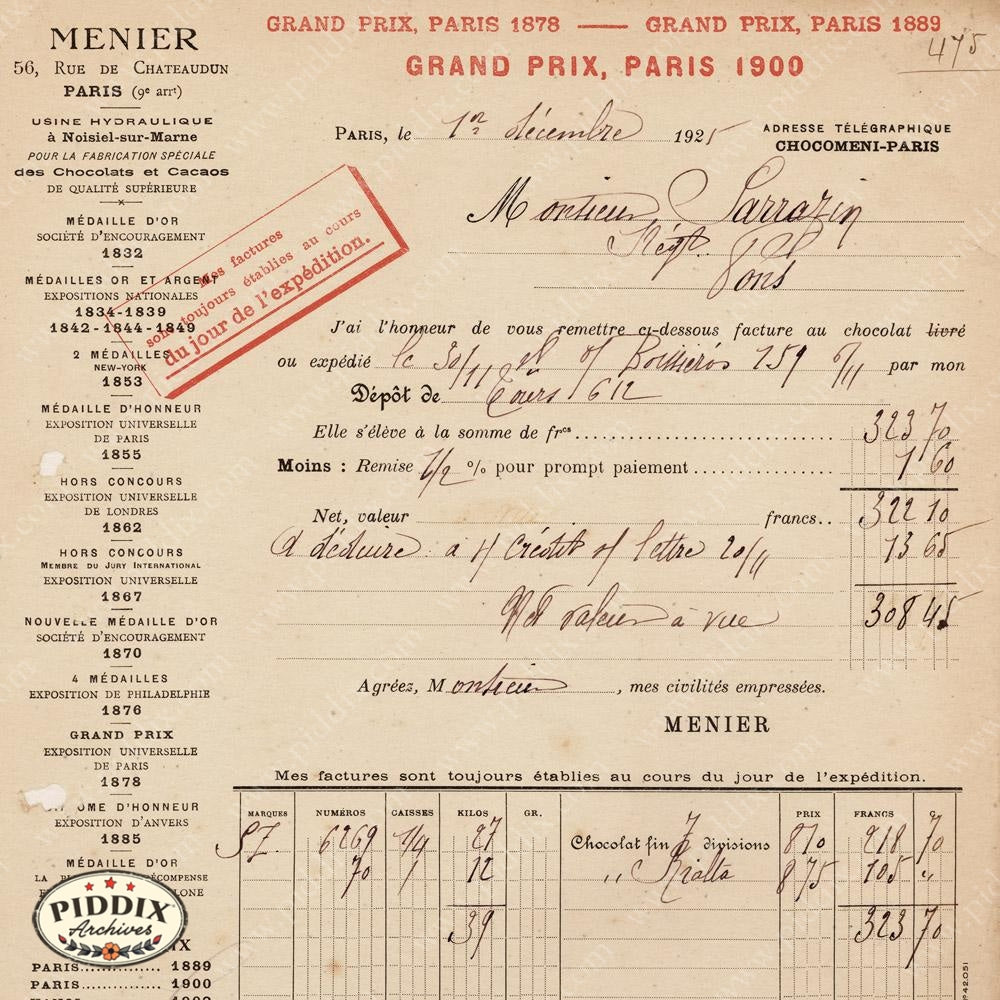 GRAND PRIX, PARIS 1878 — GRAND PRIX, PARIS 1889
GRAND PRIX, PARIS 1900
475
MENIER
56, RUE DE CHATEAUDUN
PARIS (9e arrt)
USINE HYDRAULIQUE
à Noisiel-sur-Marne
POUR LA FABRICATION SPÉCIALE
des Chocolats et Cacaos
DE QUALITÉ SUPÉRIEURE
MÉDAILLE D'OR
SOCIÉTÉ D'ENCOURAGEMENT
1832
MÉDAILLES OR ET ARGENT
EXPOSITIONS NATIONALES
1834-1839
1842-1844-1849
2 MÉDAILLES
NEW-YORK
1853
MÉDAILLE D'HONNEUR
EXPOSITION UNIVERSELLE
DE PARIS
1855
HORS CONCOURS
EXPOSITION UNIVERSELLE
DE LONDRES
1862
HORS CONCOURS
MEMBRE DU JURY INTERNATIONAL
EXPOSITION UNIVERSELLE
1867
NOUVELLE MÉDAILLE D'OR
SOCIÉTÉ D'ENCOURAGEMENT
1870
4 MÉDAILLES
EXPOSITION DE PHILADELPHIE
1876
GRAND PRIX
EXPOSITION UNIVERSELLE
DE PARIS
1878
OME D'HONNEUR
EXPOSITION D'ANVERS
1885
MÉDAILLE D'OR
LA RÉCOMPENSE
LONE
PIDDIX
Archives
IX
PARIS.............. 1889
PARIS.............. 1900
PARIS, le 1er décembre 1925
ADRESSE TÉLÉGRAPHIQUE
CHOCOMENI-PARIS
Monsieur Sarrazin
Négt
Pons
Mes factures
sont toujours établies au cours
du jour de l'expédition.
J'ai l'honneur de vous remettre ci-dessous facture au chocolat livré
ou expédié le 30/11 par mon
Dépôt de Tours 612
Elle s'élève à la somme de frcs 323 70
Moins : Remise 1/2 % pour prompt paiement 1 60
Net, valeur francs.. 322 10
A déduire a/ Crédit s/ lettre 20/11 13 65
Net valeur à vue 308 45
Agréez, Monsieur, mes civilités empressées.
MENIER
Mes factures sont toujours établies au cours du jour de l'expédition.
MARQUES NUMÉROS CAISSES KILOS GR. PRIX FRANCS C.
SZ. 6269 27 Chocolat fin divisions 810 218 70
70 1 12 " Rialta 875 105 "
39 323 70